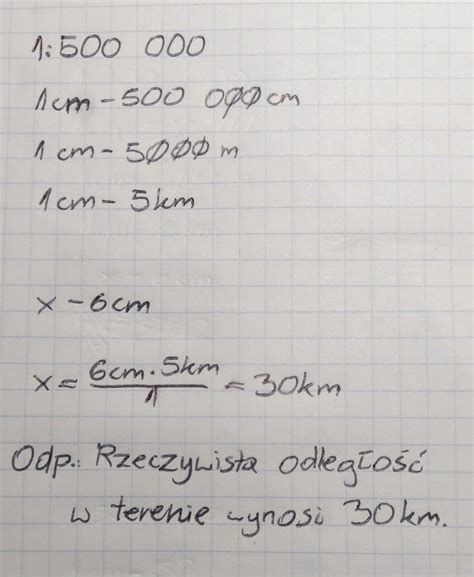 1:500 000
1cm - 500 000cm
1cm - 5000 m
1cm - 5km
x - 6cm
x = 6cm · 5km / 1 = 30km
Odp.: Rzeczywista odległość
w terenie wynosi 30km.